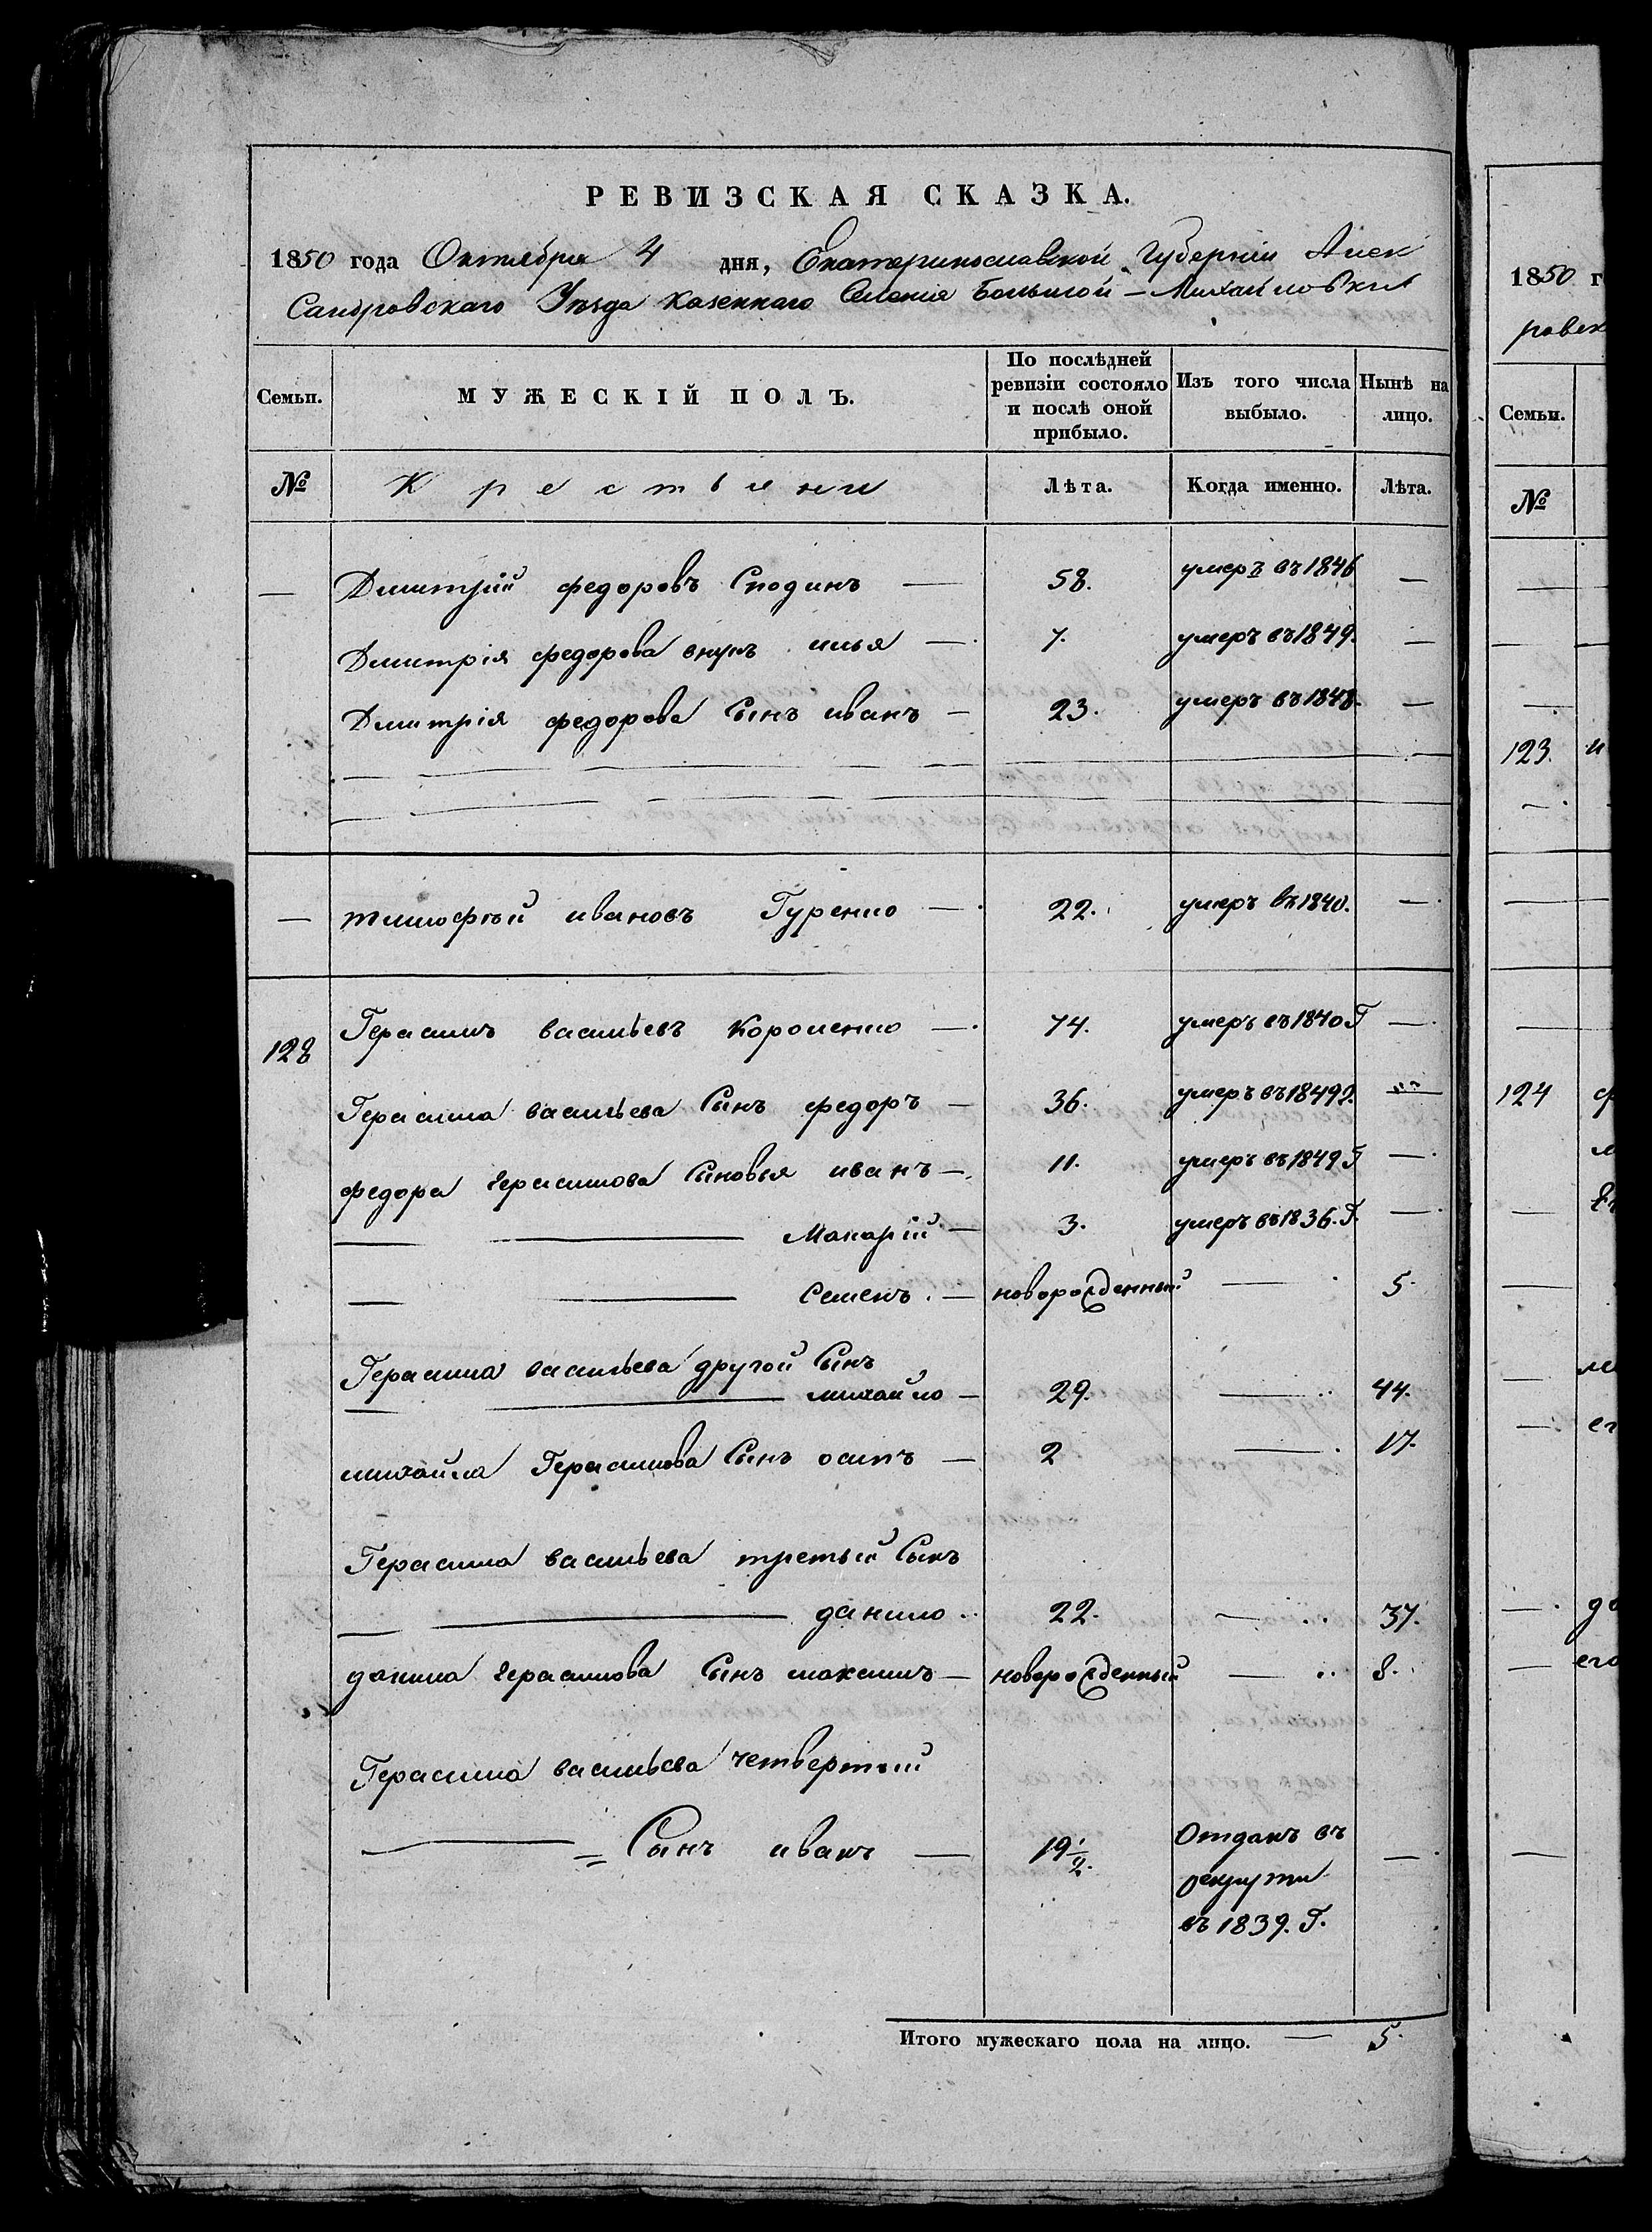 РЕВИЗСКАЯ СКАЗКА.
1850 года Октября 4 дня, Екатеринославской Губернiи Алек
Сандровскаго Уѣзда Казеннаго Селенiя Большой – Михайловки
Семьи. МУЖЕСКIЙ ПОЛЪ. По послѣдней ревизiи состояло и послѣ оной прибыло. Изъ того числа выбыло. Нынѣ на лицо.
№ Крестьяни Лѣта. Когда именно. Лѣта.
— Дмитрiй федоровъ Сподинъ — 58. умеръ въ 1846 —
Дмитрiя федорова внукъ илья — 7. умеръ въ 1849. —
Дмитрiя федорова Сынъ иванъ — 23. умеръ въ 1848. —
— тимофѣй ивановъ Гуренко — 22. умеръ въ 1840. —
128 Герасимъ васильевъ Короленко — 74. умеръ въ 1840 Г —
Герасима васильева Сынъ федоръ — 36. умеръ въ 1849 г. —
федора герасимова Сыновья иванъ — 11. умеръ въ 1849 Г —
— — Макарiй — 3. умеръ въ 1836. Г. —
— — Семенъ. — новорожденный — 5.
Герасима васильева другой Сынъ
— — михайло — 29. — 44.
михайла Герасимова Сынъ осипъ — 2 — 17.
Герасима васильева третьий Сынъ
— — данило. 22. — 37.
данила герасимова Сынъ максимъ — новорожденный — 8.
Герасима васильева четвертый
— = Сынъ иванъ — 19 1/2. Отданъ въ —
рекруты
въ 1839. Г.
Итого мужескаго пола на лицо. — 5.
1850 г
ровск
Семьи.
№
123. и
124 ф